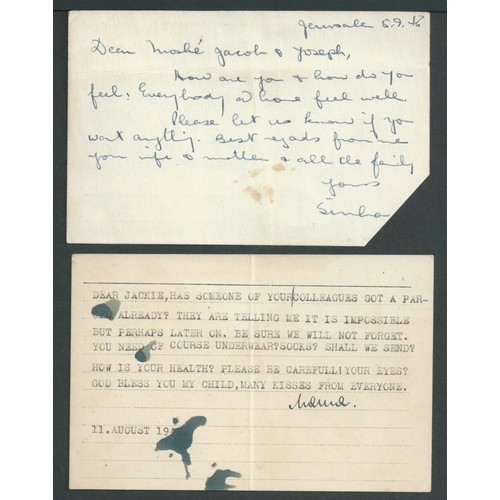 Jerusalem 5.9.46
Dear Moshé Jacob & Joseph,
How are you & how do you
feel? Everybody at home feel well
Please let us know if you
want anything. Best regads from me
your wife & mother & all the family
yours
Simha
DEAR JACKIE,HAS SOMEONE OF YOUR COLLEAGUES GOT A PAR-
ALREADY? THEY ARE TELLING ME IT IS IMPOSSIBLE
BUT PERHAPS LATER ON. BE SURE WE WILL NOT FORGET.
YOU NEED OF COURSE UNDERWEAR?SOCKS? SHALL WE SEND?
HOW IS YOUR HEALTH? PLEASE BE CAREFULL!YOUR EYES?
GOD BLESS YOU MY CHILD,MANY KISSES FROM EVERYONE.
Mama.
11.AUGUST 19